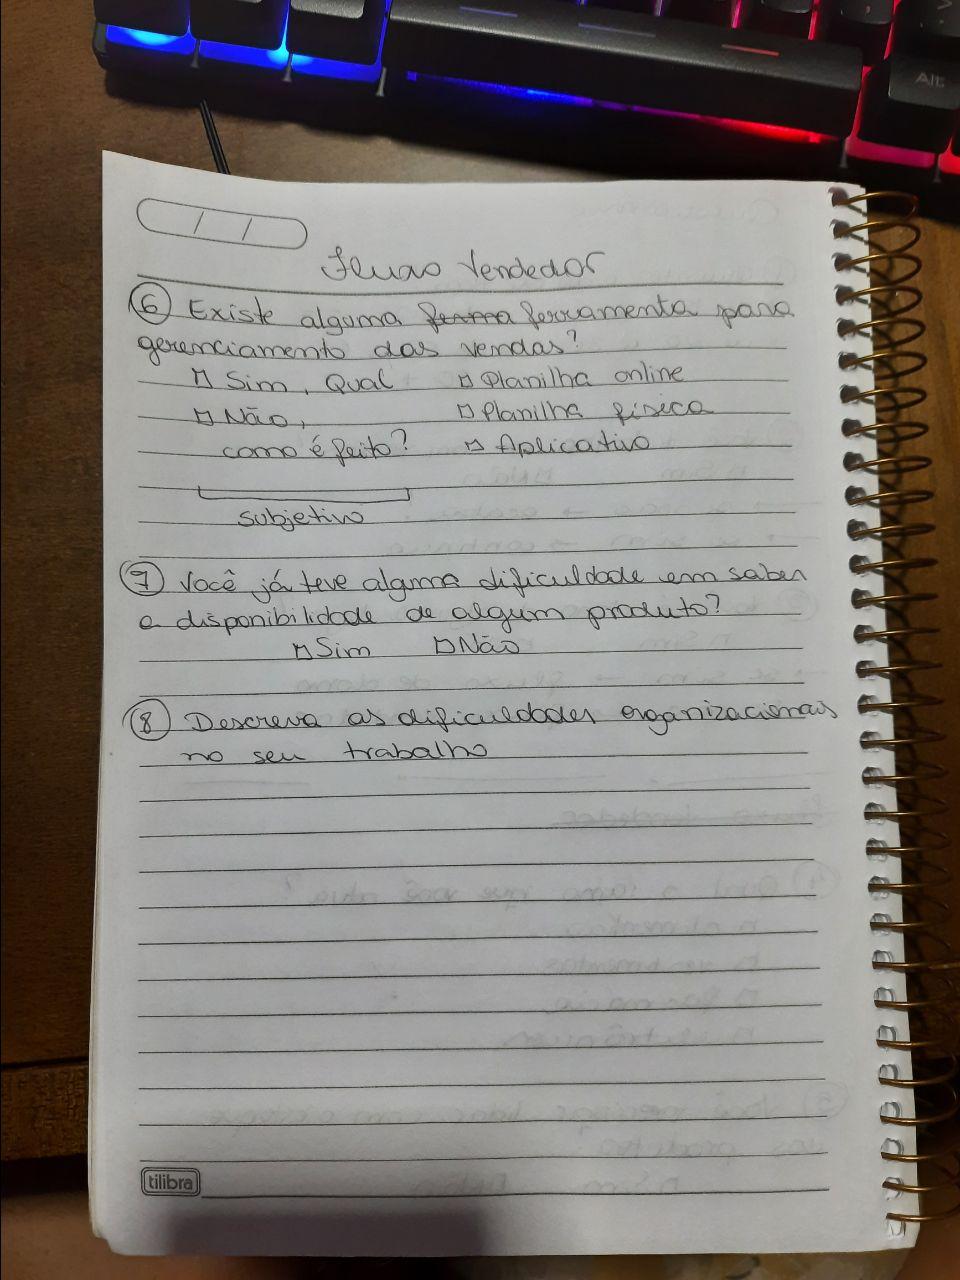 Fluxo Vendedor
6 Existe alguma forma ferramenta para
gerenciamento das vendas?
□ Sim, Qual □ Planilha online
□ Não, □ Planilha física
como é feito? □ Aplicativo
subjetivo
7 Você já teve alguma dificuldade em saber
a disponibilidade de algum produto?
□ Sim □ Não
8 Descreva as dificuldades organizacionais
no seu trabalho
tilibra
Alt